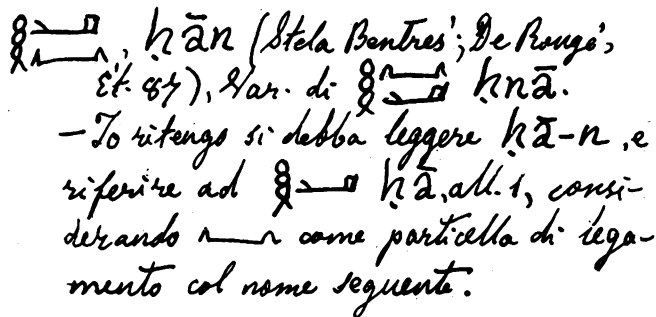 𓎛𓂝𓈖, ḥān (Stela Bentreš; De Rougé,
Ét. 87), Var. di 𓎛𓈖𓂝 ḥnā.
– Io ritengo si debba leggere ḥā-n, e
riferire ad 𓎛𓂝 ḥā, all. 1, consi-
derando 𓈖 come particella di lega-
mento col nome seguente.